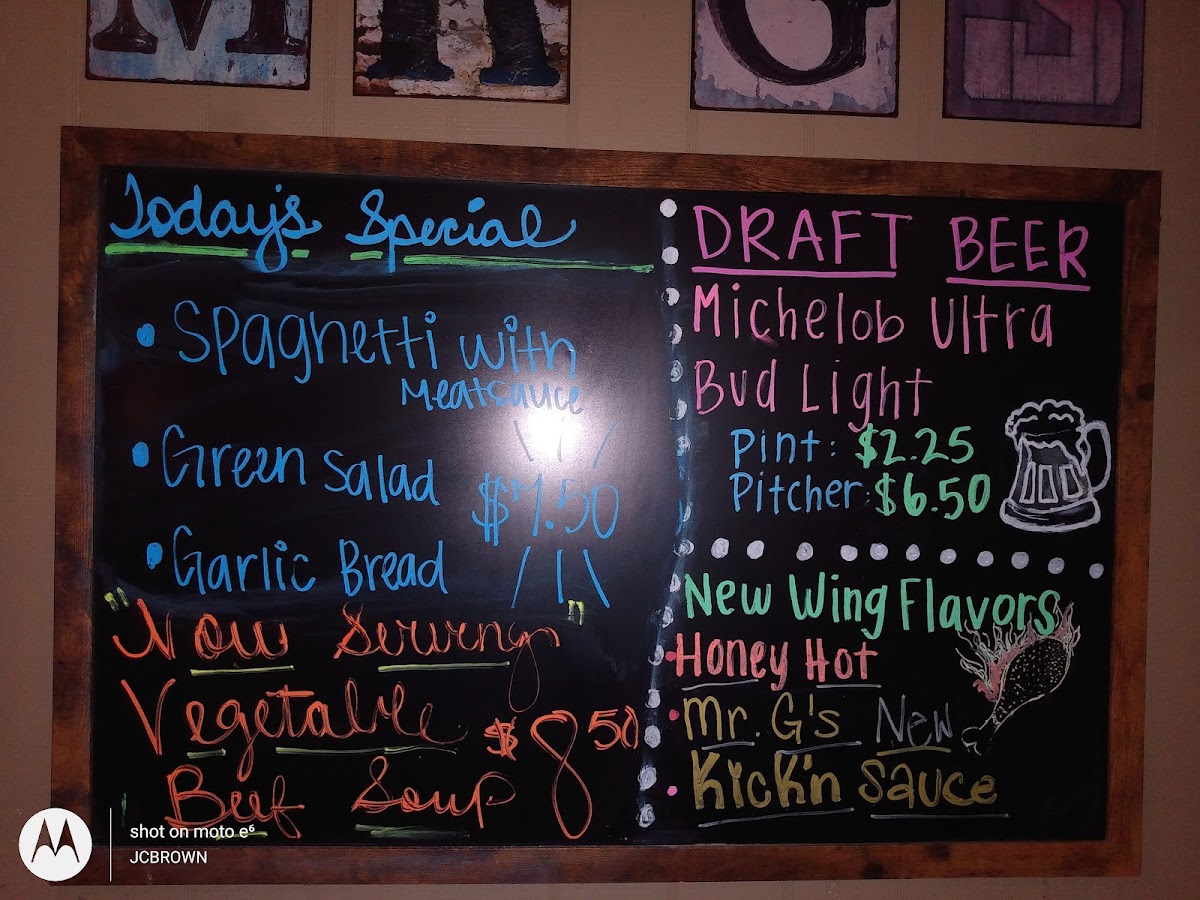 MR G'S
Today's Special
• Spaghetti with
Meatsauce
• Green Salad
$7.50
• Garlic Bread
"Now Serving"
Vegetable
$8.50
Beef Soup
DRAFT BEER
Michelob Ultra
Bud Light
Pint: $2.25
Pitcher: $6.50
New Wing Flavors
• Honey Hot
• Mr. G's New
• Kick'n Sauce
shot on moto e⁶
JCBROWN